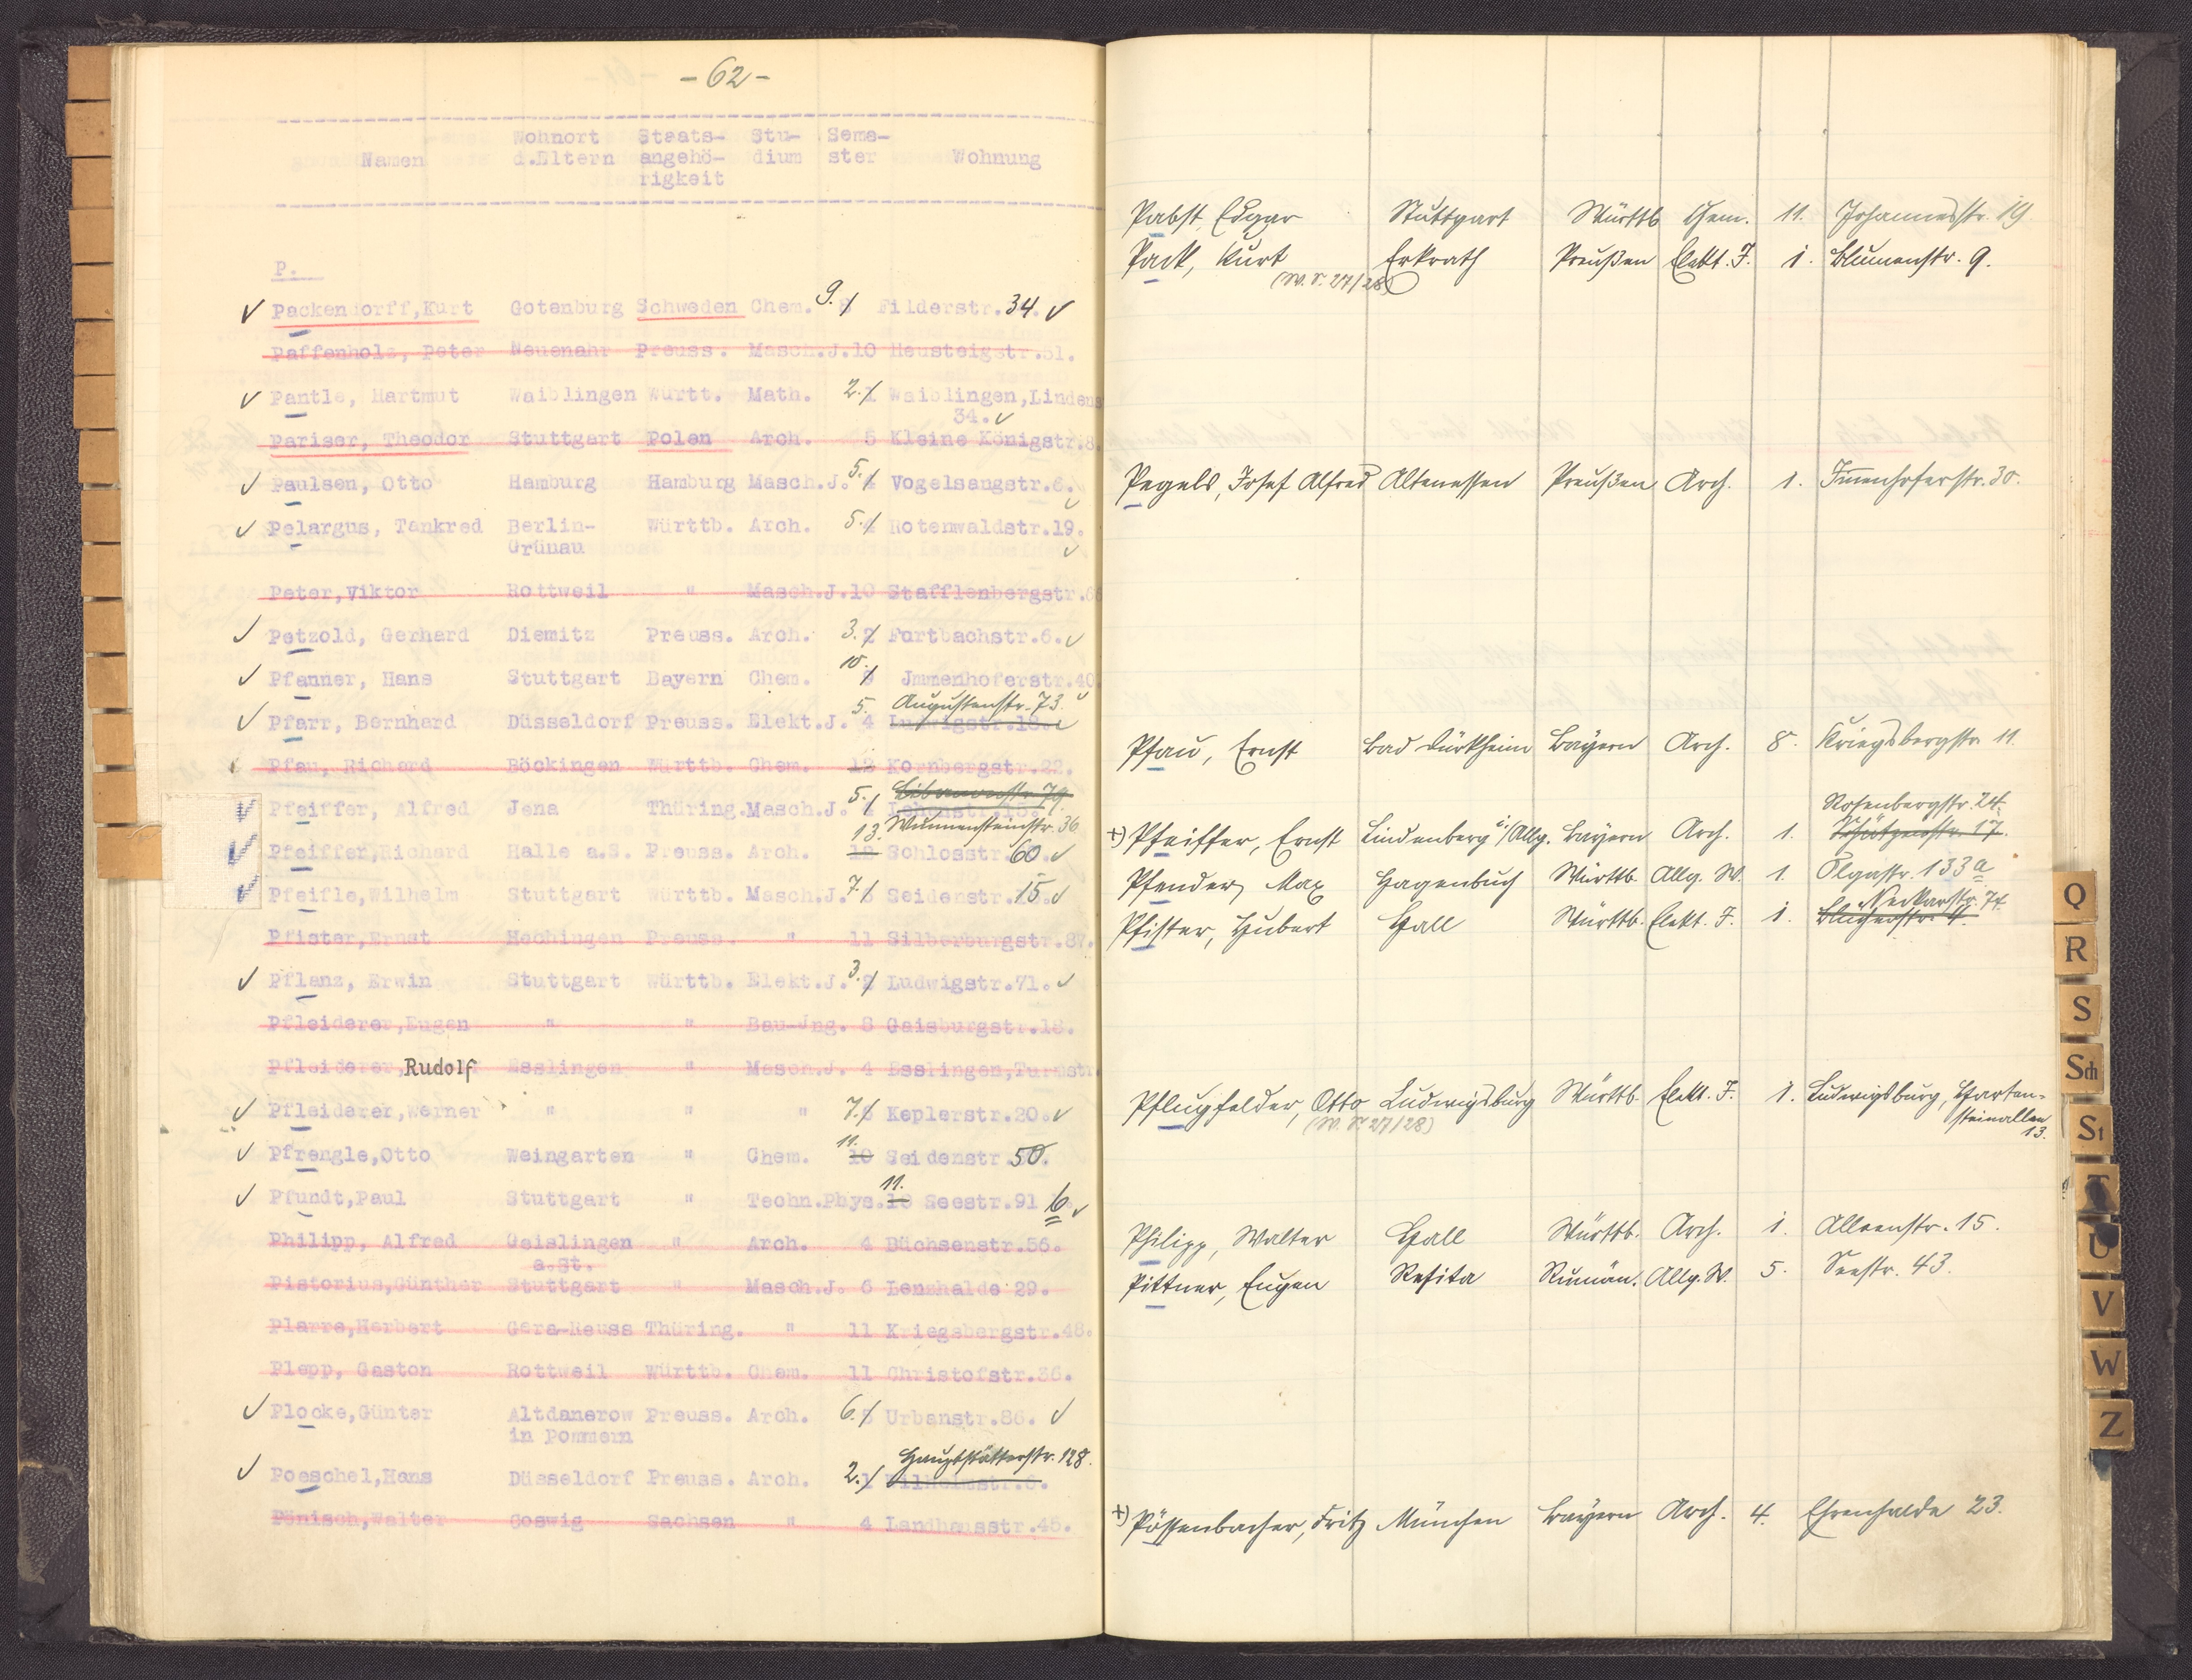 -62-
Namen Wohnort d.Eltern Staatsangehörigkeit Studium Semester Wohnung
P.
Packendorff,Kurt Gotenburg Schweden Chem. 9. 8 Filderstr.34.
Paffenholz, Peter Neuenahr Preuss. Masch.J.10 Heusteigstr.51.
Pantle, Hartmut Waiblingen Württ. Math. 2. 1 Waiblingen,Lindens
34.
Pariser, Theodor Stuttgart Polen Arch. 5 Kleine Königstr.8.
Paulsen, Otto Hamburg Hamburg Masch.J. 5. 4 Vogelsangstr.6.
Pelargus, Tankred Berlin- Württb. Arch. 5. 4 Rotenwaldstr.19.
Grünau
Peter,Viktor Rottweil " Masch.J.10 Stafflenbergstr.
Petzold, Gerhard Diemitz Preuss. Arch. 3. 2 Furtbachstr.6.
Pfanner, Hans Stuttgart Bayern Chem. 10. 9 Jmmenhoferstr.40
Augustenstr. 73.
Pfarr, Bernhard Düsseldorf Preuss. Elekt.J. 5. 4 Ludwigstr.18.
Pfau, Richard Böckingen Württb. Chem. 12 Kornbergstr.22.
Pfeiffer, Alfred Jena Thüring.Masch.J. 5. 4 Lehenstr.
Wunnensteinstr. 36
Pfeiffer,Richard Halle a.S. Preuss. Arch. 13. 12 Schlosstr.60.
Pfeifle,Wilhelm Stuttgart Württb. Masch.J. 7. 6 Seidenstr.15.
Pfister,Ernst Hechingen Preuss. " 11 Silberburgstr.87.
Pflanz, Erwin Stuttgart Württb. Elekt.J. 3. 2 Ludwigstr.71.
Pfleiderer,Eugen " " Bau-Jng. 8 Gaisburgstr.18.
Pfleiderer, Rudolf Esslingen " Masch.J. 4 Esslingen,Turmstr.
Pfleiderer,Werner " " " 7. 6 Keplerstr.20.
Pfrengle,Otto Weingarten " Chem. 11. 10 Seidenstr.50.
Pfundt,Paul Stuttgart " Techn.Phys. 11. 10 Seestr.91 b.
Philipp, Alfred Geislingen " Arch. 4 Büchsenstr.56.
a.St.
Pistorius,Günther Stuttgart " Masch.J. 6 Lenzhalde 29.
Plarre,Herbert Gera-Reuss Thüring. " 11 Kriegsbergstr.48.
Plepp, Gaston Rottweil Württb. Chem. 11 Christofstr.36.
Plocke,Günter Altdamerow Preuss. Arch. 6. 5 Urbanstr.86.
in Pommern
Hauptstätterstr. 128.
Poeschel,Hans Düsseldorf Preuss. Arch. 2. 1 Wilhelmstr.6.
Pönisch,Walter Coswig Sachsen " 4 Landhausstr.45.
Pabst, Edgar Stuttgart Württb Chem. 11. Johannesstr. 19
Pack, Kurt Erkrath Preußen Elekt. J. 1. Blumenstr. 9.
(W.S. 27/28)
Pegels, Josef Alfred Altenessen Preußen Arch. 1. Immenhoferstr. 30.
Pfau, Ernst Bad Dürkheim Bayern Arch. 8. Kriegsbergstr. 11.
Rosenbergstr. 24.
+) Pfeiffer, Ernst Lindenberg i./Allg. Bayern Arch. 1. Schützenstr. 17.
Pfender, Max Hagenbuch Württb. Allg. W. 1. Olgastr. 133a
Neckarstr. 74
Pfister, Hubert Hall Württb. Elekt. J. 1. Blücherstr. 4.
Pflugfelder, Otto Ludwigsburg Württb. Elekt. J. 1. Ludwigsburg, Harten-
(W.S. 27/28) steinallee
13.
Philipp, Walter Hall Württb. Arch. 1. Alleenstr. 15.
Pittner, Eugen Resita Rumän. Allg. W. 5. Seestr. 43.
+) Pössenbacher, Fritz München Bayern Arch. 4. Ehrenhalde 23.
Q
R
S
Sch
St
T
U
V
W
Z